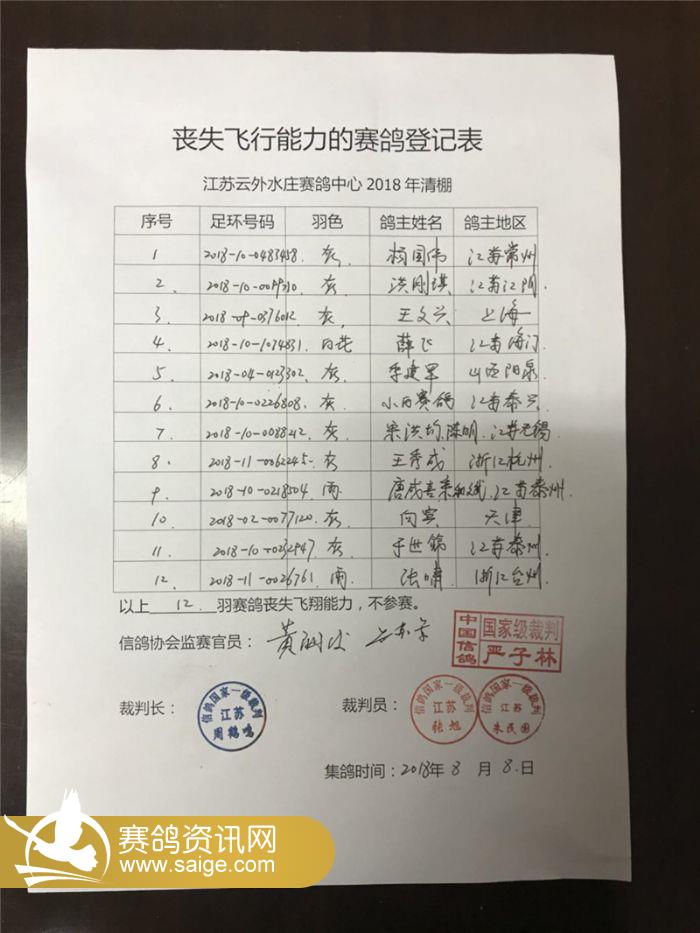 丧失飞行能力的赛鸽登记表
江苏云外水庄赛鸽中心 2018 年清棚
序号 足环号码 羽色 鸽主姓名 鸽主地区
1 2018-10-0483458. 灰. 杨国伟 江苏常州
2. 2018-10-0099210 灰. 洪刚琪 江苏江阴.
3. 2018-09-0376012 灰, 王文兴 上海
4. 2018-10-1034831. 白花 薛飞 江苏海门.
5. 2018-04-0123302. 灰. 李建军 山西阳泉.
6. 2018-10-0226808. 灰. 小丙赛鸽 江苏泰兴.
7. 2018-10-0088242 灰. 宋洪均.陈明. 江苏无锡
8. 2018-11-0062245. 灰 王秀成 浙江杭州.
9. 2018-10-0218504. 雨. 唐成喜 江苏泰州.
10. 2018-02-0077120. 灰. 向宾 天津.
11. 2018-10-0232947. 灰. 于世锦. 江苏泰州.
12. 2018-11-0026761. 雨. 张啸. 浙江台州.
以上 12. 羽赛鸽丧失飞翔能力，不参赛。
信鸽协会监赛官员： 黄
中国信鸽 国家级裁判 严子林
裁判长： 信鸽国家一级裁判 江苏 周鹤鸣
裁判员： 信鸽国家一级裁判 江苏 张旭 信鸽国家一级裁判 江苏 朱民国
集鸽时间：2018年 8 月 8.日
赛鸽资讯网
www.saige.com